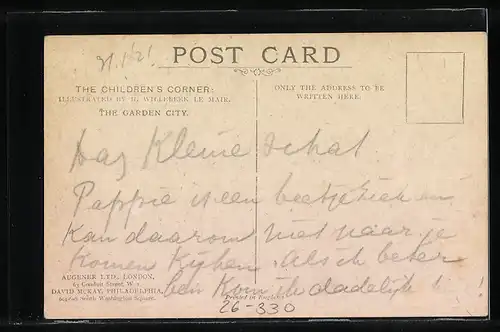 31.1.21.
POST CARD
THE CHILDREN'S CORNER:
ILLUSTRATED BY H. WILLEBEEK LE MAIR.
THE GARDEN CITY.
ONLY THE ADDRESS TO BE
WRITTEN HERE.
Dag Kleine schat
Pappie is een beetje ziek en
kan daarom niet naar je
komen kijken. Als ik beter
ben kom ik dadelijk!
AUGENER LTD., LONDON,
63 Conduit Street, W. 1.
DAVID McKAY, PHILADELPHIA,
604-608 South Washington Square.
Printed in England
26-330